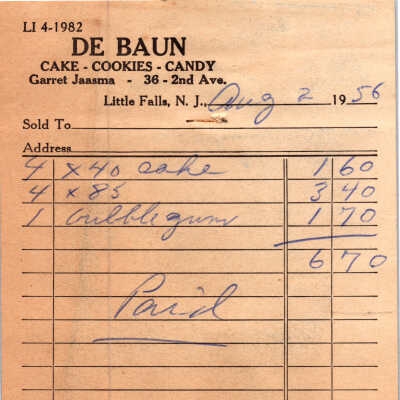 LI 4-1982
DE BAUN
CAKE - COOKIES - CANDY
Garret Jaasma - 36 - 2nd Ave.
Little Falls, N. J., Aug 2 1956
Sold To
Address
4 x 40 cake 1 60
4 x 85 3 40
1 bubblegum 1 70
6 70
Paid